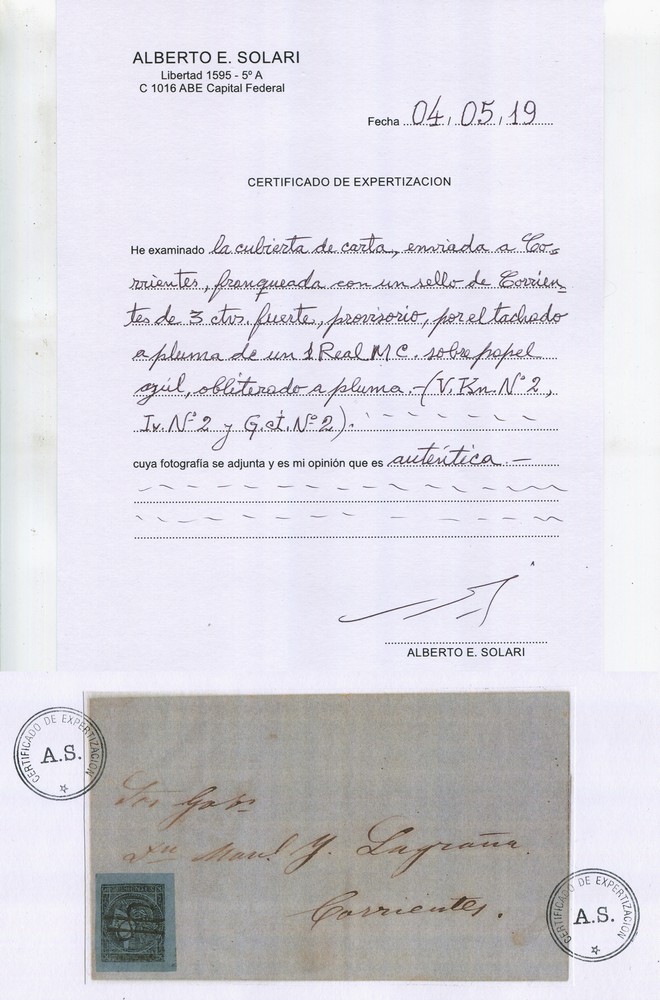 ALBERTO E. SOLARI
Libertad 1595 - 5º A
C 1016 ABE Capital Federal
Fecha 04 / 05 / 19
CERTIFICADO DE EXPERTIZACION
He examinado la cubierta de carta, enviada a Co-
rrientes, franqueada con un sello de Corrien-
tes de 3 ctvs. fuerte, provisorio, por el tachado
a pluma de un 1 Real M C. sobre papel
azúl, obliterado a pluma.-(V. Kn. Nº 2,
Iv. Nº 2 y G. ct. Nº 2).
cuya fotografía se adjunta y es mi opinión que es auténtica -
ALBERTO E. SOLARI
CERTIFICADO DE EXPERTIZACION
A.S.
Sor Gobr
Dn Manl Y. Lagraña.
Corrientes.
CORRIENTES
CERTIFICADO DE EXPERTIZACION
A.S.